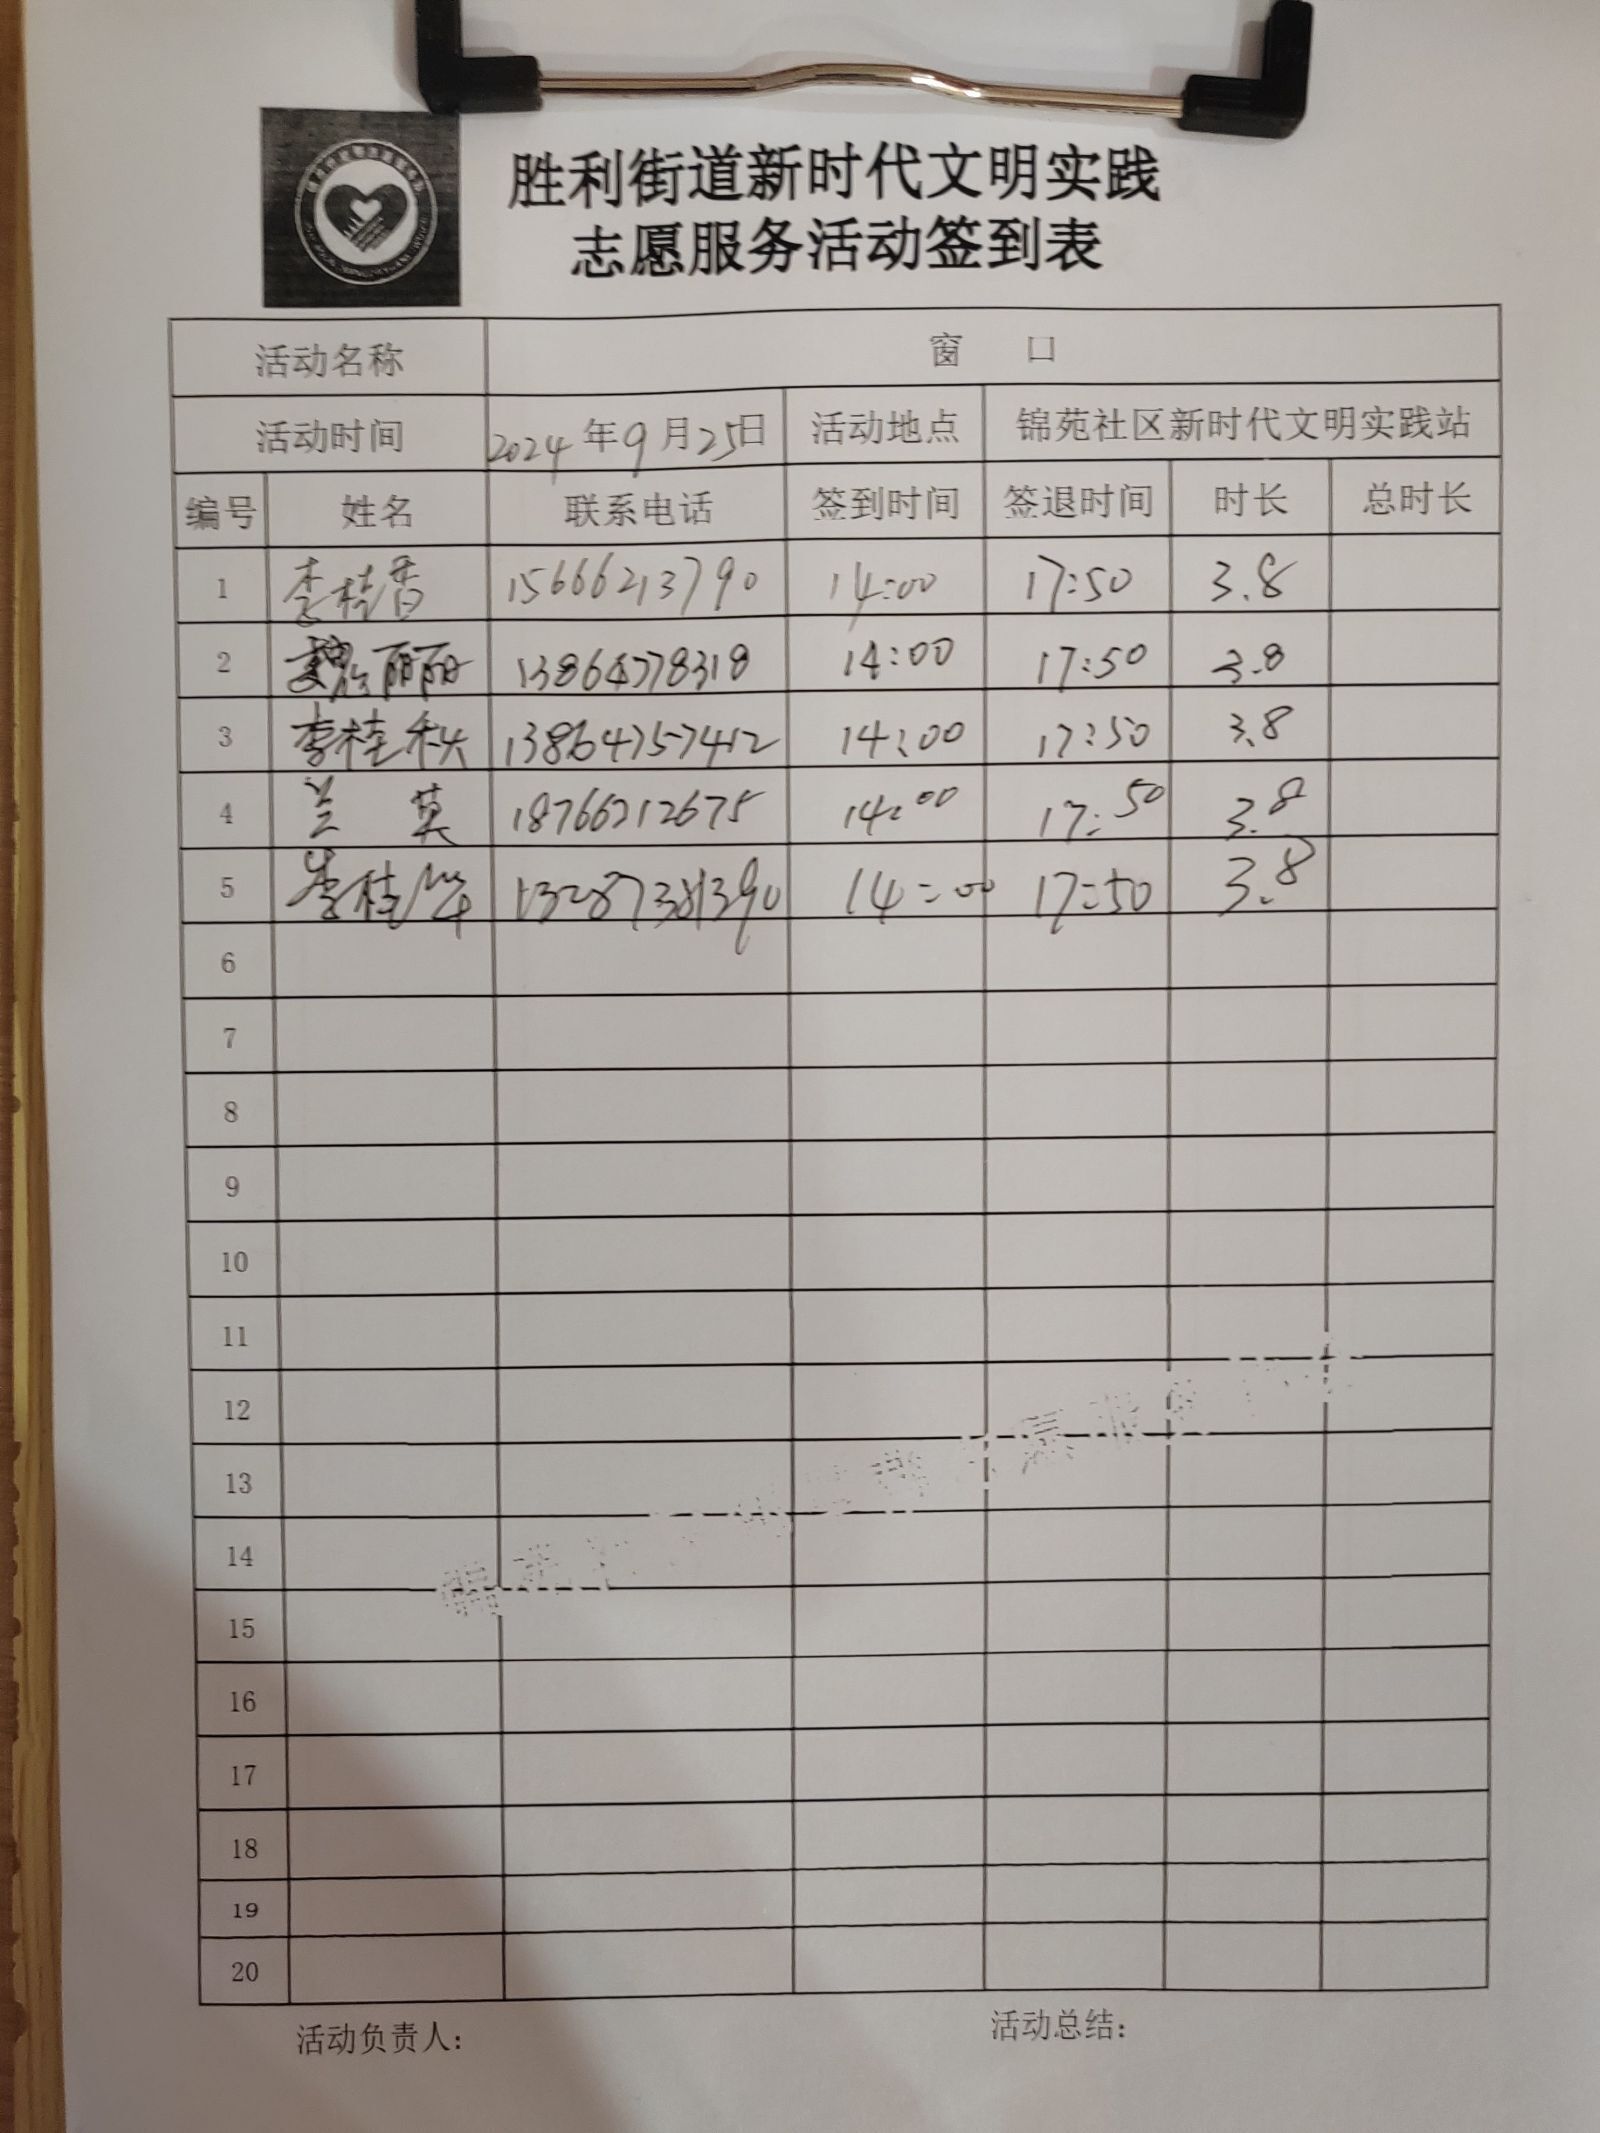 胜利街道新时代文明实践
志愿服务活动签到表
活动名称 窗 口
活动时间 2024年9月25日 活动地点 锦苑社区新时代文明实践站
编号 姓名 联系电话 签到时间 签退时间 时长 总时长
1 李桂香 15666213790 14:00 17:50 3.8
2 魏丽丽 13864778318 14:00 17:50 3.8
3 李桂秋 13864757412 14:00 17:50 3.8
4 兰 英 18766212675 14:00 17:50 3.8
5 李桂华 14:00 17:50 3.8
6
7
8
9
10
11
12
13
14
15
16
17
18
19
20
活动负责人: 活动总结: